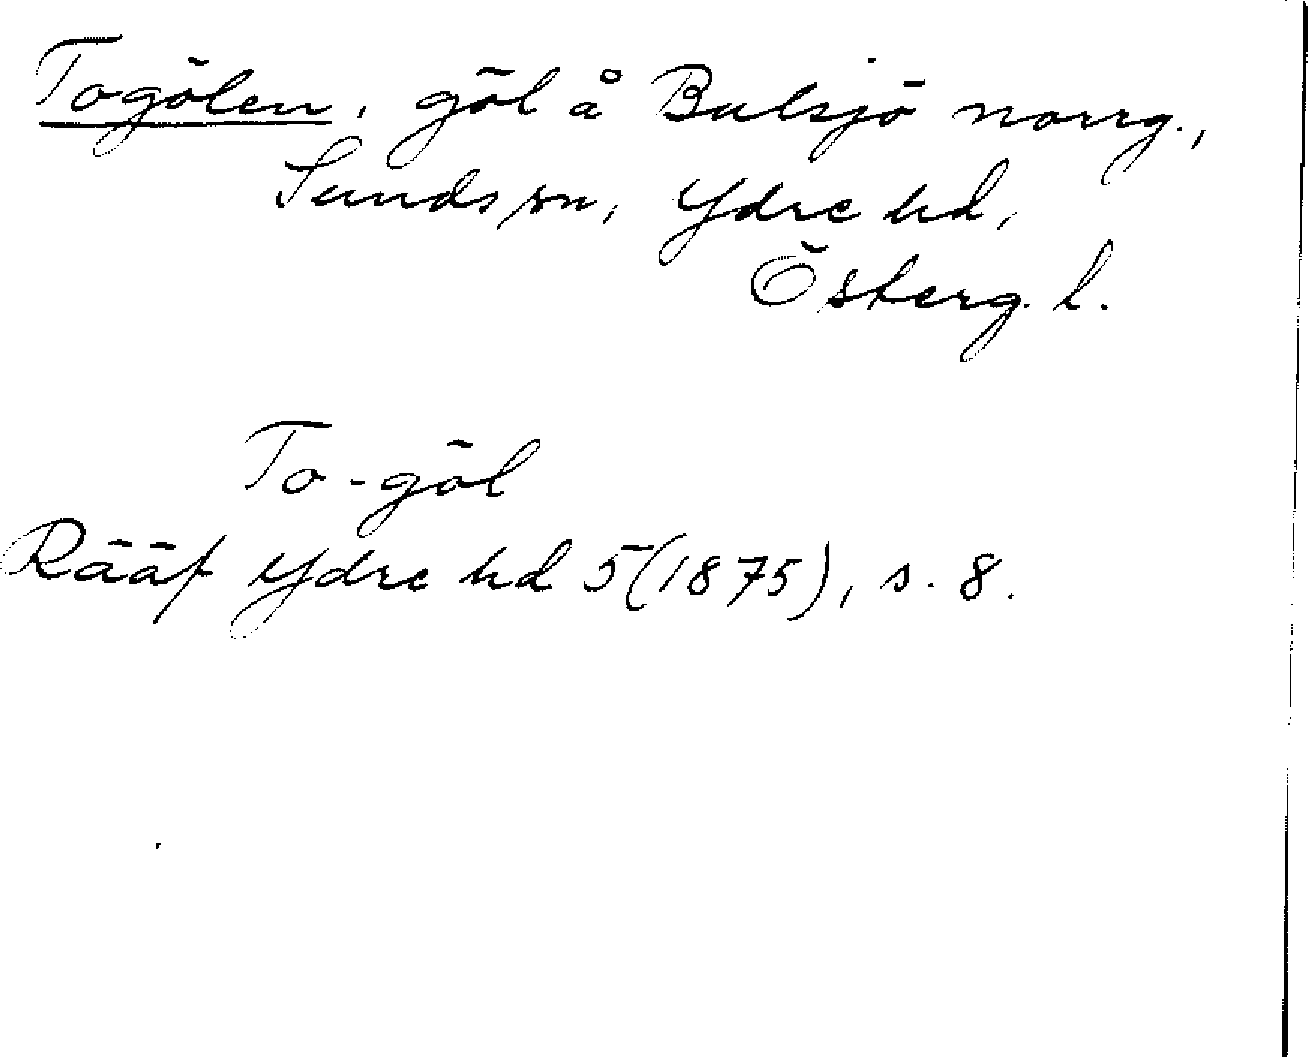 Togölen, göl å Bulsjö norrg.,
Sunds sn, Ydre hd,
Österg. l.
To-göl
Rääf Ydre hd 5 (1875), s. 8.